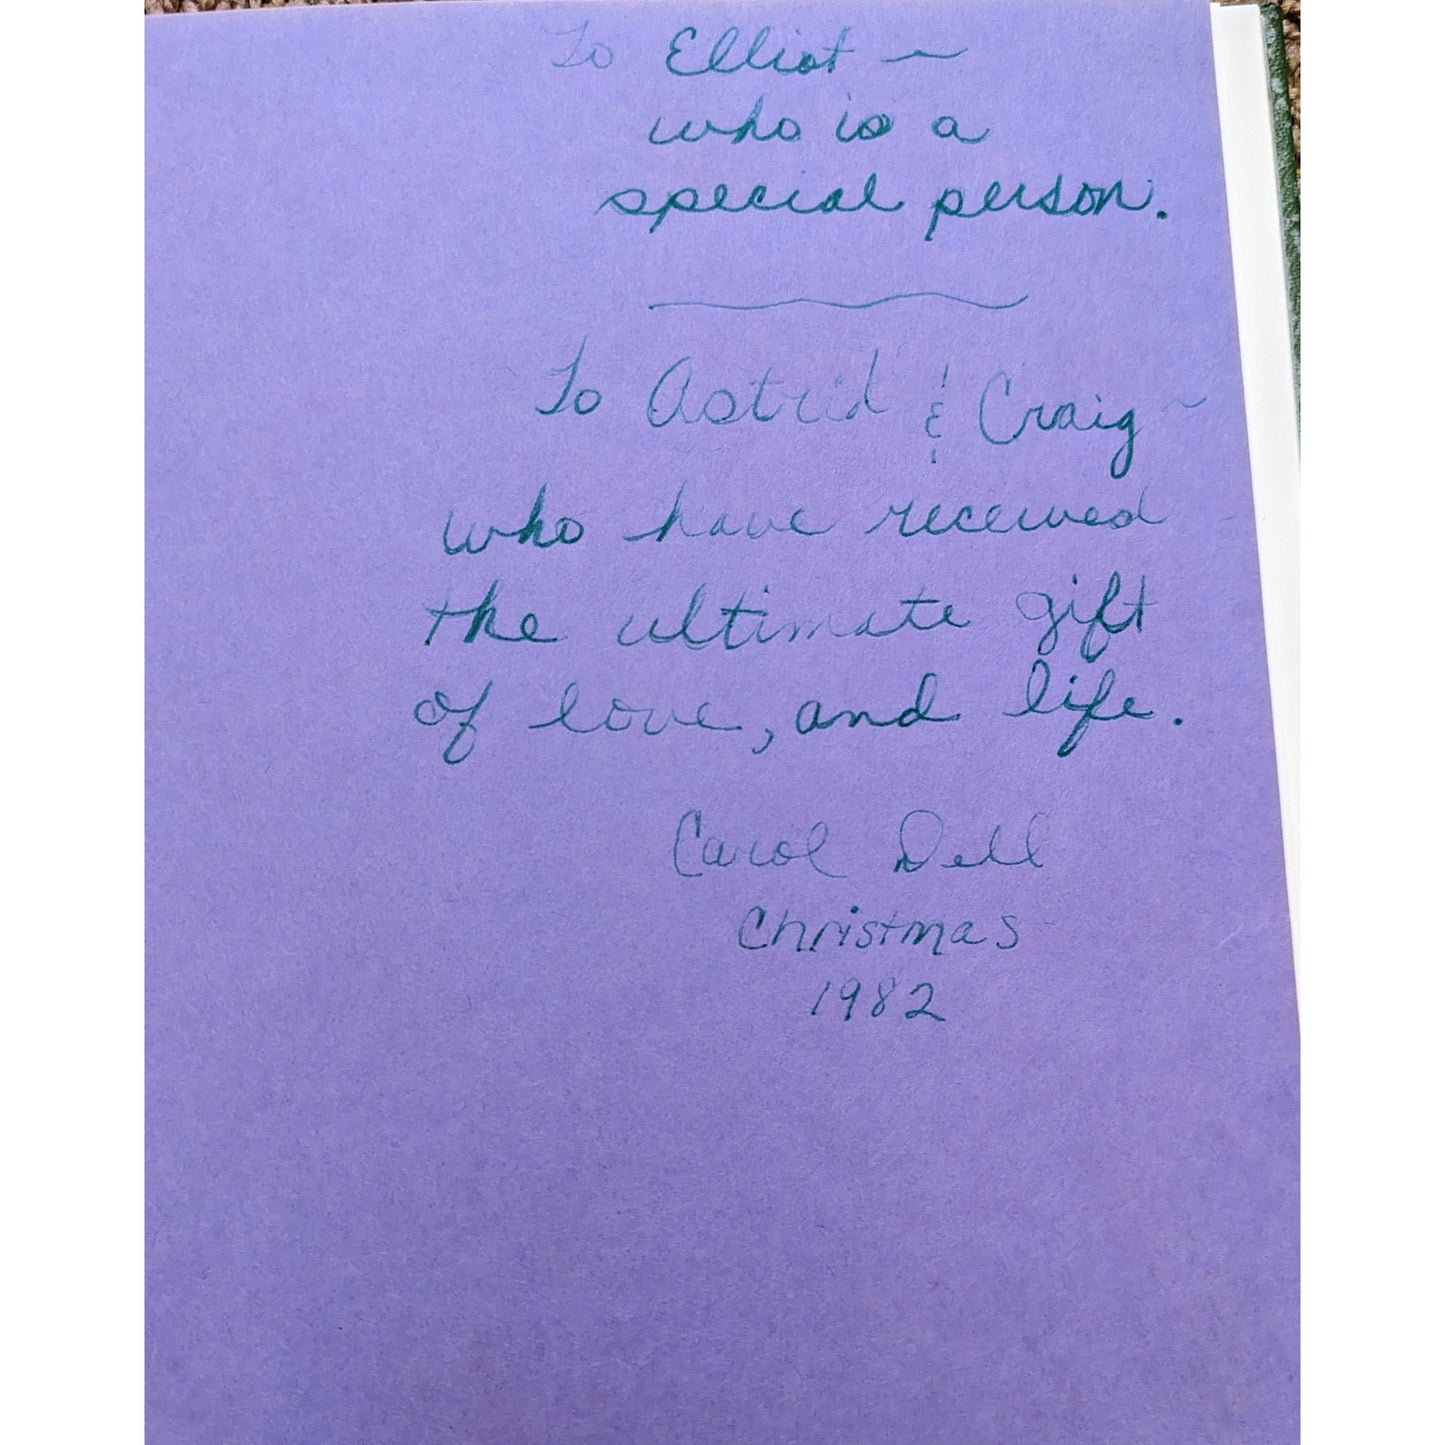 To Elliot ~
who is a
special person.
To Astrid & Craig ~
who have received
the ultimate gift
of love, and life.
Carol Dell
Christmas
1982